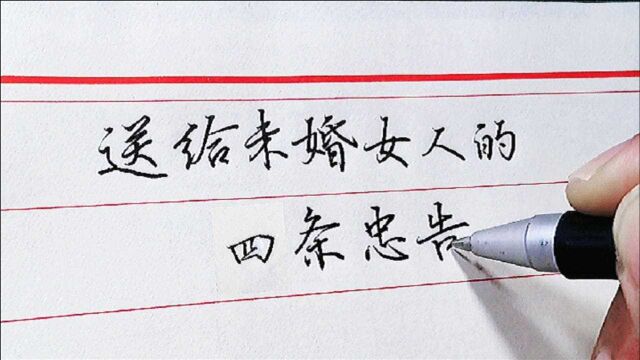 送给未婚女人的
四条忠告